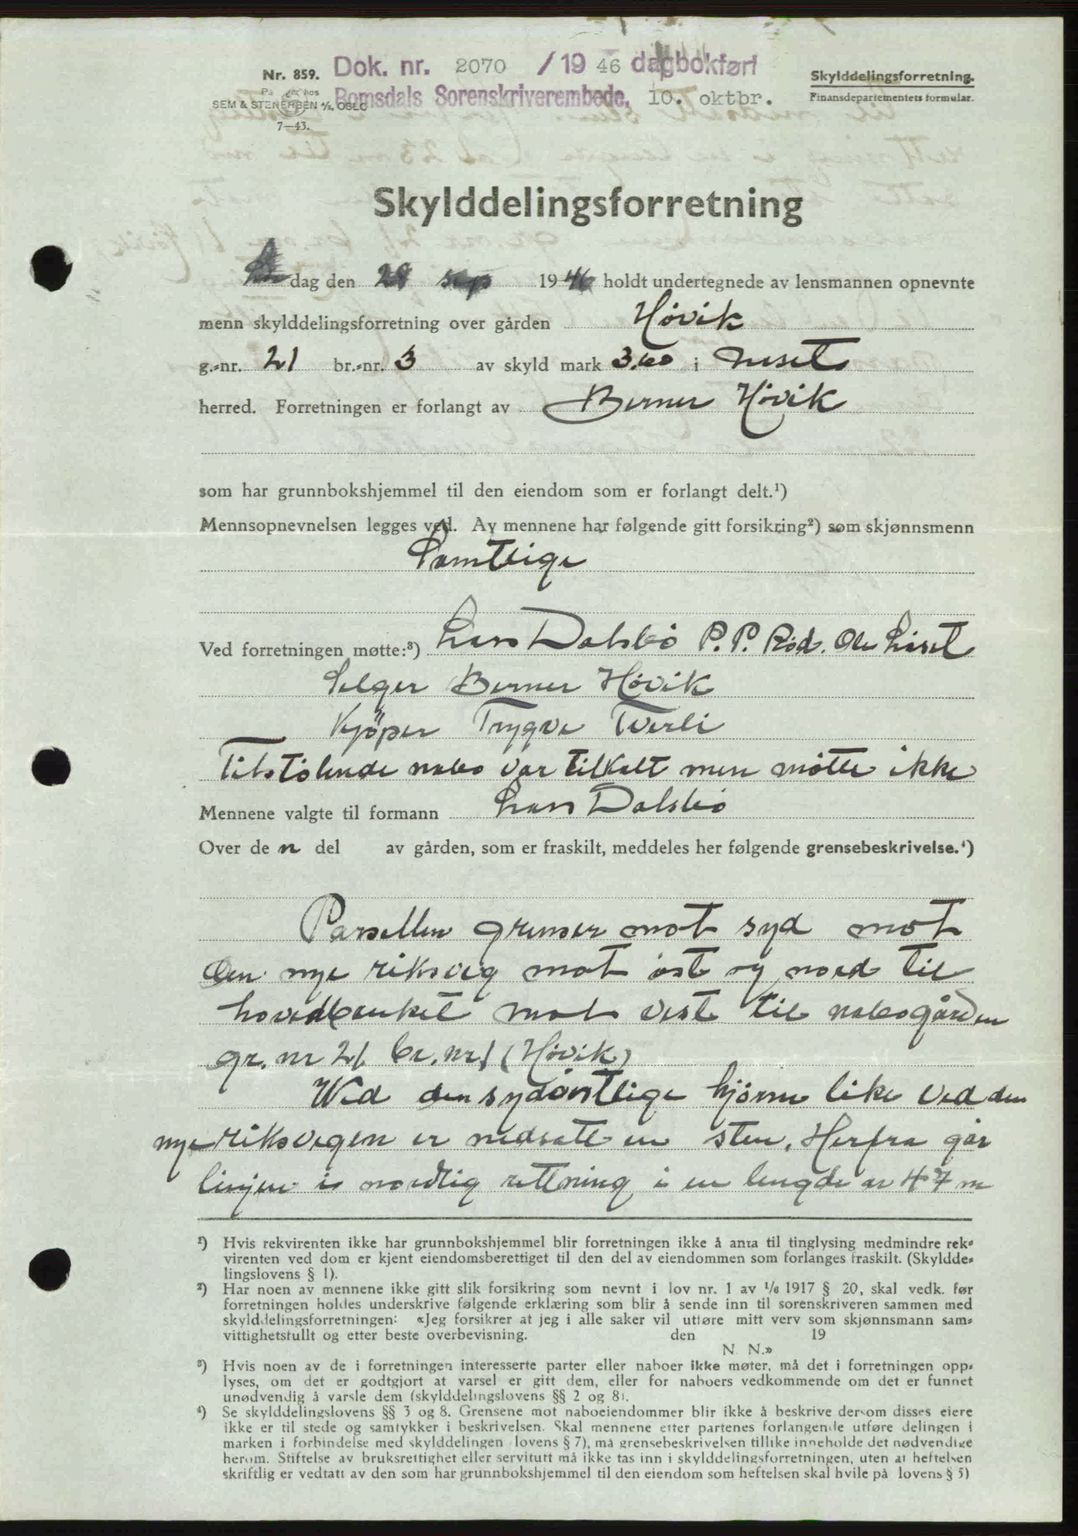 Nr. 859.
På hos
SEM & STENERSEN A/S, OSLO
7—43.
Dok. nr. 2070 / 1946 dagbokført
Romsdals Sorenskriverembede, 10. oktbr.
Skylddelingsforretning.
Finansdepartementets formular.
Skylddelingsforretning
dag den 28 sep 1946 holdt undertegnede av lensmannen opnevnte
menn skylddelingsforretning over gården Høvik
g.-nr. 21 br.-nr. 3 av skyld mark 3.60 i Neset
herred. Forretningen er forlangt av Berner Høvik
som har grunnbokshjemmel til den eiendom som er forlangt delt.¹)
Mennsopnevnelsen legges ved. Av mennene har følgende gitt forsikring²) som skjønnsmenn
Samtlige
Ved forretningen møtte:³) Lars Dalsbø P. P. Rød. Ole Liset
Selger Berner Høvik
Kjøper Trygve Tverli
Tilstøtende nabo var tilkalt men møtte ikke
Mennene valgte til formann Lars Dalsbø
Over den del av gården, som er fraskilt, meddeles her følgende grensebeskrivelse.⁴)
Parsellen grenser mot syd mot
den nye riksveg mot øst og nord til
hovedbruket mot vest til nabogården
gr. nr 21 br. nr 1 (Høvik)
Wed den sydøstlige hjørne like ved den
nye riksvegen er nedsatt en sten. Herfra går
linjen i nordlig rettning i en lengde av 47 m
¹) Hvis rekvirenten ikke har grunnbokshjemmel blir forretningen ikke å anta til tinglysing medmindre rek-
virenten ved dom er kjent eiendomsberettiget til den del av eiendommen som forlanges fraskilt. (Skyldde-
lingslovens § 1).
²) Har noen av mennene ikke gitt slik forsikring som nevnt i lov nr. 1 av 1/6 1917 § 20, skal vedk. før
forretningen holdes underskrive følgende erklæring som blir å sende inn til sorenskriveren sammen med
skylddelingsforretningen: «Jeg forsikrer at jeg i alle saker vil utføre mitt verv som skjønnsmann sam-
vittighetsfullt og etter beste overbevisning. den 19
N. N.»
³) Hvis noen av de i forretningen interesserte parter eller naboer ikke møter, må det i forretningen opp-
lyses, om det er godtgjort at varsel er gitt dem, eller for naboers vedkommende om det er funnet
unødvendig å varsle dem (skylddelingslovens §§ 2 og 8).
⁴) Se skylddelingslovens §§ 3 og 8. Grensene mot naboeiendommer blir ikke å beskrive dersom disses eiere
ikke er til stede og samtykker i beskrivelsen. Skal mennene etter partenes forlangende utføre delingen i
marken i forbindelse med skylddelingen (lovens § 7), må grensebeskrivelsen tillike inneholde det nødvendige
herom. Stiftelse av bruksrettighet eller servitutt må ikke tas inn i skylddelingsforretningen, uten at heftelsen
skriftlig er vedtatt av den som har grunnbokshjemmel til den eiendom som heftelsen skal hvile på (lovens § 5)